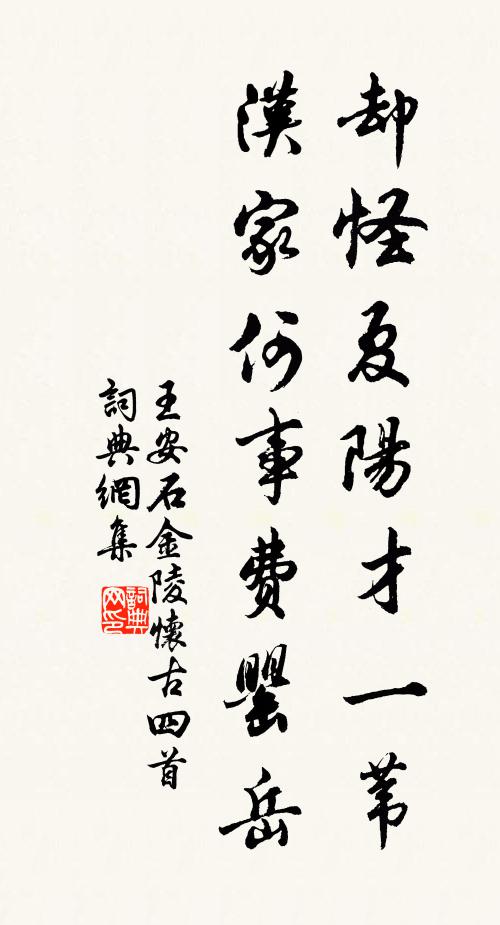 却怪夏陽才一葦
漢家何事費罌岳
王安石金陵懷古四首
詞典網集
詞典
网印